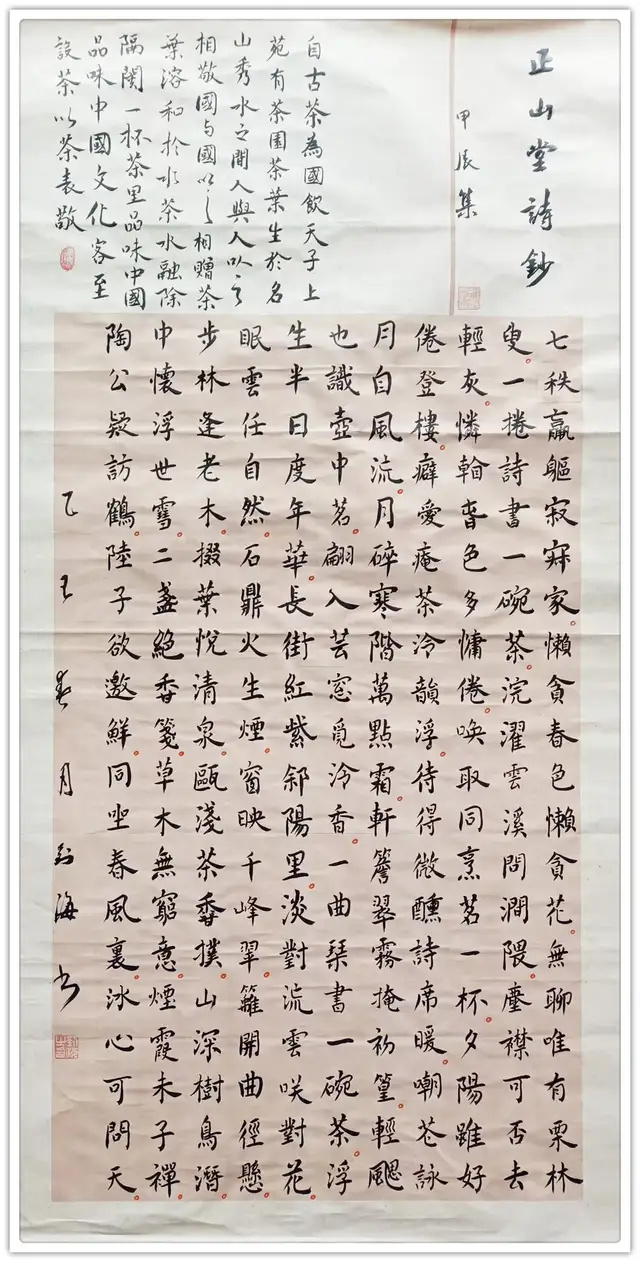 正山堂詩鈔
甲辰集
自古茶為國飲天子上
苑有茶園茶葉生於名
山秀水之間人與人以之
相敬國與國以之相贈茶
葉溶和於水茶水融除
隔閡一杯茶里品味中國
品味中國文化客至
設茶以茶表敬
七秩羸軀寂家懶貪春色懶貪花無聊唯有栗林
叟一捲詩書一碗茶浣濯雲溪問澗隈塵襟可否去
輕灰憐昏色多慵倦喚取同烹茗一杯夕陽雖好
倦登樓癖愛庵茶冷韻浮待得微醺詩席暖嘲花詠
月自風流月碎寒階萬點霜軒簷翠霧掩初篁輕颸
也識壺中茗翩入芸窓覓冷香一曲琹書一碗茶浮
生半日度年華長街紅紫斜陽里淡對流雲咲對花
眠雲任自然石鼎火生煙窗映千峰翠籬開曲徑懸
步林逢老木掇葉悅清泉甌淺茶香撲山深樹鳥潛
中懷浮世雪二盞絕香箋草木無窮意煙霞未子禪
陶公疑訪鶴陸子欲邀鮮同坐春風裏冰心可問天
乙巳春月劉海書